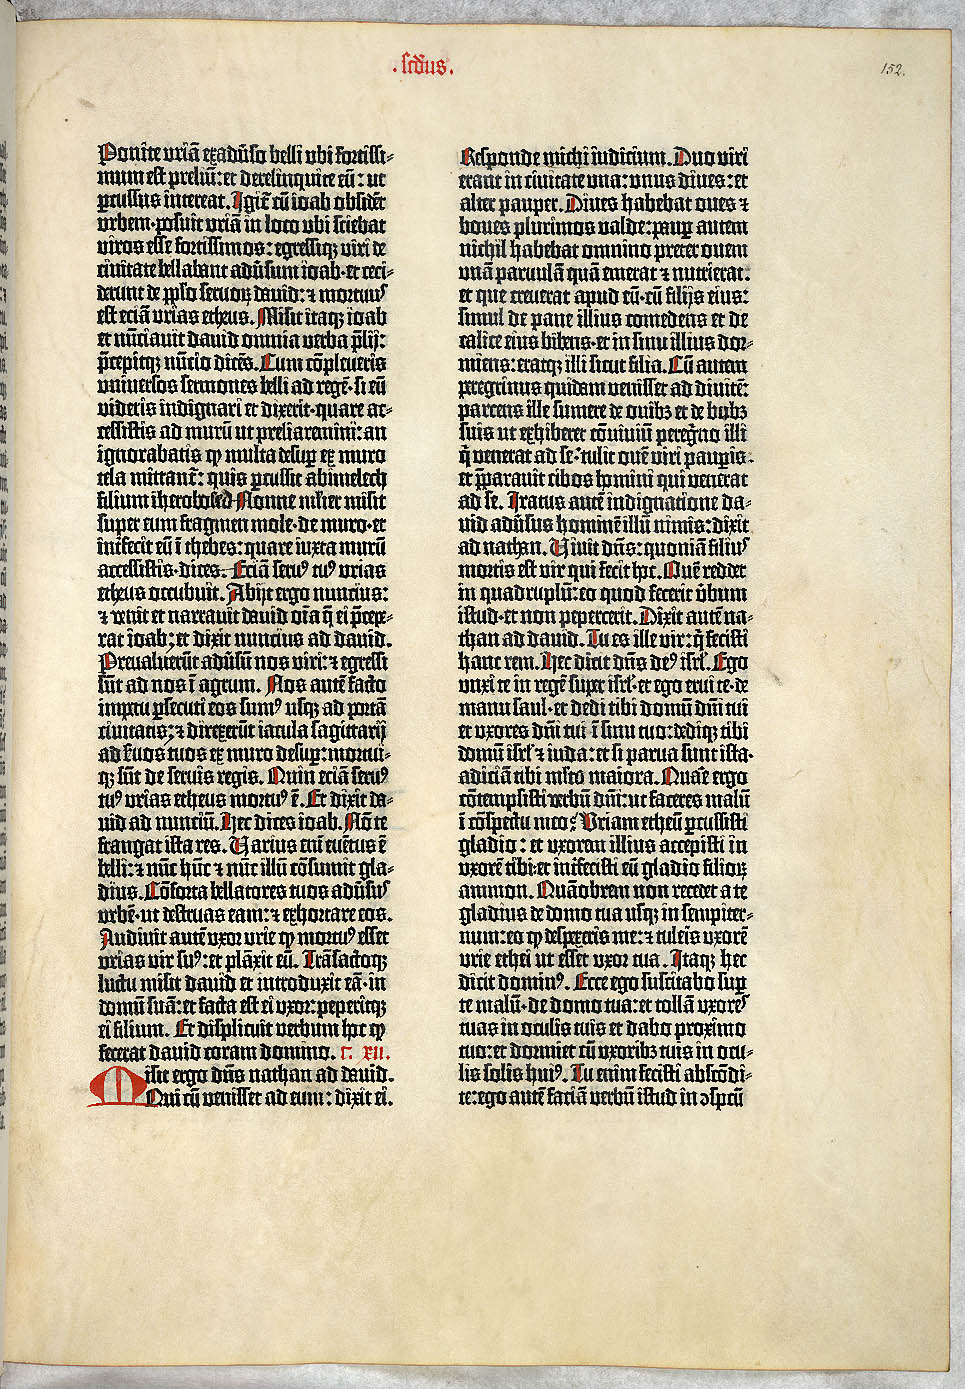 .scd̄us.
152.
Ponite vriā exadūso belli vbi fortissi-
mum est preliū: et derelinquite eū: ut
percussus intereat. Igit̄ cū ioab obsidēt
vrbem·posuit vriā in loco vbi sciebat
viros esse fortissimos: egressiqꝫ viri de
civitate bellabant adūsum ioab·et ceci-
derunt de pplo seruoꝝ dauid: ⁊ mortuus
est eciā vrias etheus. Misit itaqꝫ ioab
et nūciauit dauid omnia verba p̄lij:
p̄cepitqꝫ nūcio dicēs. Cum cōpleueris
vniuersos sermones belli ad regē·si eū
videris indignari et dixerit·quare ac-
cessistis ad murū ut preliaremini: an
ignorabatis ꝙ multa desuꝑ ex muro
tela mittant̄: quis ꝑcussit abimelech
filium iherobosed·Nonne mlier misit
super eum fragmen mole·de muro·et
int̄fecit eū ī thebes: quare iuxta murū
accessistis·dices. Eciā seruꝰ tuꝰ vrias
etheus occubuit. Abijt ergo nuncius:
⁊ venit et narrauit dauid oīa q̄ ei p̄cepe-
rat ioab: et dixit nuncius ad dauid.
Preualuerūt adūsū nos viri: ⁊ egressi
sūt ad nos ī agrum. Nos autē facto
impetu ꝑsecuti eos sumꝰ usqꝫ ad portā
ciuitatis: ⁊ direxerūt iacula sagittarij
ad ẜuos tuos ex muro desuꝑ: mortui-
qꝫ sūt de seruis regis. Quin eciā seruꝰ
tuꝰ vrias etheus mortuꝰ ē. Et dixit da-
uid ad nunciū. Hec dices ioab. Nō te
frangat ista res. Varius eni euētus ē
belli: ⁊ nūc hūc ⁊ nūc illū cōsumit gla-
dius. Cōforta bellatores tuos adūsus
vrbē·ut destruas eam: ⁊ exhortare eos.
Audiuit autē vxor vrie ꝙ mortuꝰ esset
vrias vir suꝰ: et plāxit eū. Trāsactoqꝫ
luctu misit dauid et introduxit eā·in
domū suā: et facta est ei vxor: peperitqꝫ
ei filium. Et displicuit verbum hoc ꝙ
fecerat dauid coram domino. c. xii.
Misit ergo dn̄s nathan ad dauid.
Qui cū venisset ad eum: dixit ei.
Responde michi iudicium. Duo viri
erant in ciuitate vna: vnus diues: et
alter pauper. Diues habebat oues ⁊
boues plurimos valde: pauꝑ autem
nichil habebat omnino preter ouem
vnā paruulā quā emerat ⁊ nutrierat:
et que creuerat apud eū·cū filijs eius:
simul de pane illius comedens et de
calice eius bibens·et in sinu illius dor-
miens: eratqꝫ illi sicut filia. Cū autem
peregrinus quidam venisset ad diuitē:
parcens ille sumere de ouibꝫ et de bubꝫ
suis ut exhiberet cōuiuiū peregrino illi
q̄ venerat ad se: tulit ouē viri pauperis·
et p̄parauit cibos homini qui venerat
ad se. Iratus autē indignatione da-
uid adūsus hominē illū nimis: dixit
ad nathan. Viuit dn̄s: quoniā filius
mortis est vir qui fecit hoc. Ouē reddet
in quadruplū: eo quod fecerit v̄bum
istud·et non pepercerit. Dixit autē na-
than ad dauid. Tu es ille vir: q̄ fecisti
hanc rem. Hec dicit dn̄s deꝰ isrl̄. Ego
vnxi te in regē super isrl̄·et ego erui te·de
manu saul·et dedi tibi domū dn̄i tui
et vxores dn̄i tui ī sinu tuo: dediqꝫ tibi
domū isrl̄ ⁊ iuda: et si parua sunt ista·
adiciā tibi ml̄to maiora. Quare ergo
cōtempsisti verbū dn̄i: ut faceres malū
ī cōspectu meo? Vriam etheū ꝑcussisti
gladio: et vxorem illius accepisti in
vxorē tibi·et int̄fecisti eū gladio filioꝝ
ammon. Quāobrem non recedet a te
gladius de domo tua usqꝫ in sempiter-
num: eo ꝙ despexeris me: ⁊ tuleris vxorē
vrie ethei ut esset vxor tua. Itaqꝫ hec
dicit dominꝰ. Ecce ego suscitabo suꝑ
te malū·de domo tua: et tollā vxores
tuas in oculis tuis et dabo proximo
tuo: et dormiet cū vxoribꝫ tuis in ocu-
lis solis huiꝰ. Tu enim fecisti abscōdi-
te: ego autē faciā verbū istud in ↄspcū